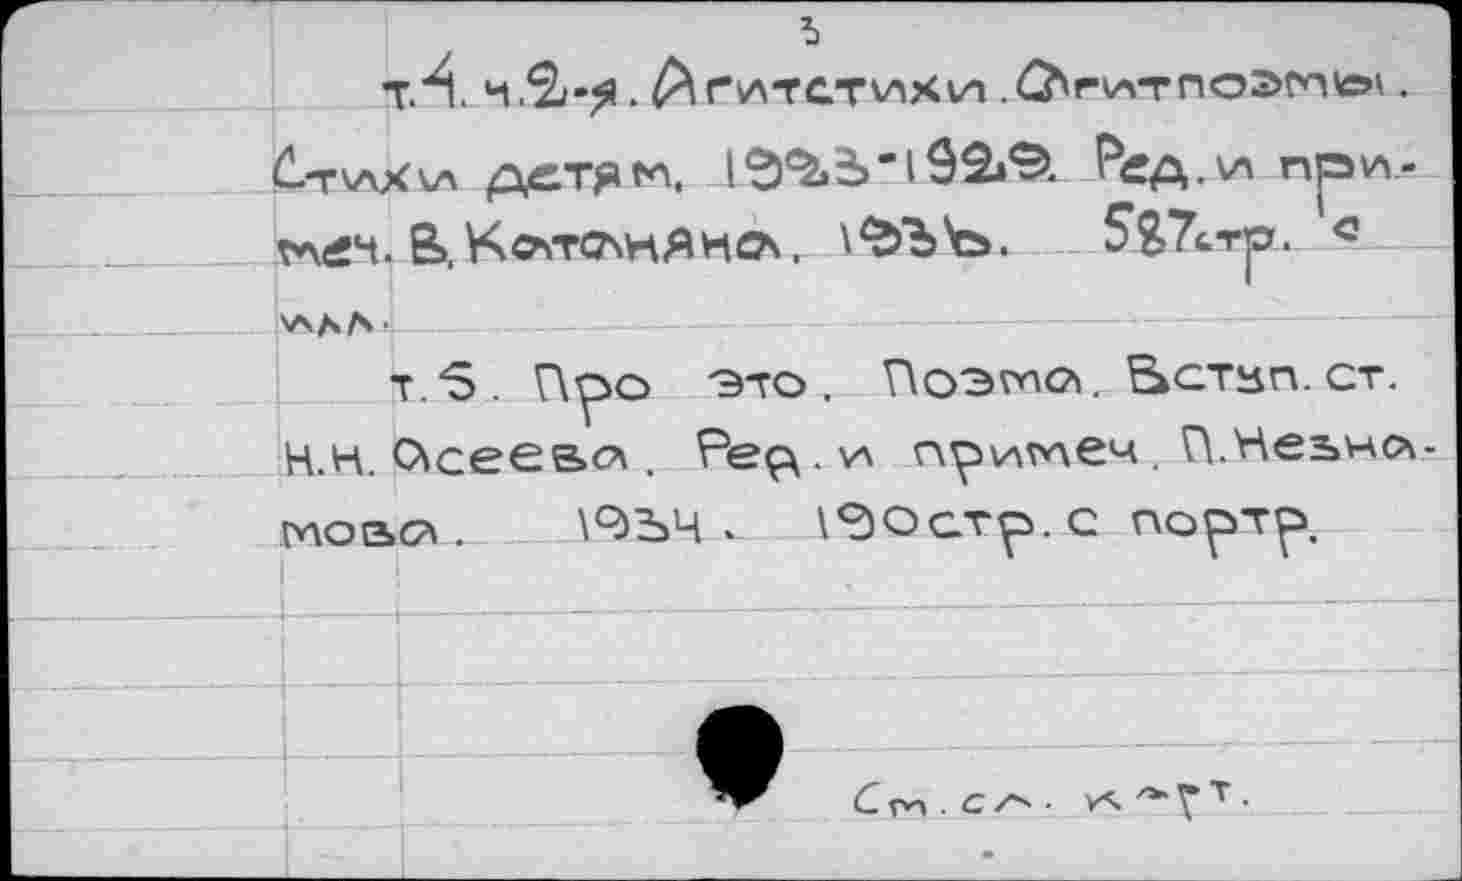 3
т.4. ч.2-я. Агитстихи. Агитпоэмы.
Стихи детям. 1923-1929. Ред. и при-
меч. В. Катаняна. 1936. 587стр. с
илл.
т.5. Про это. Поэма. Вступ. ст.
Н.Н. Асеева. Ред. и примеч. П.Незна-
мова. 1934. 190стр. с портр.
См. сл. карт.